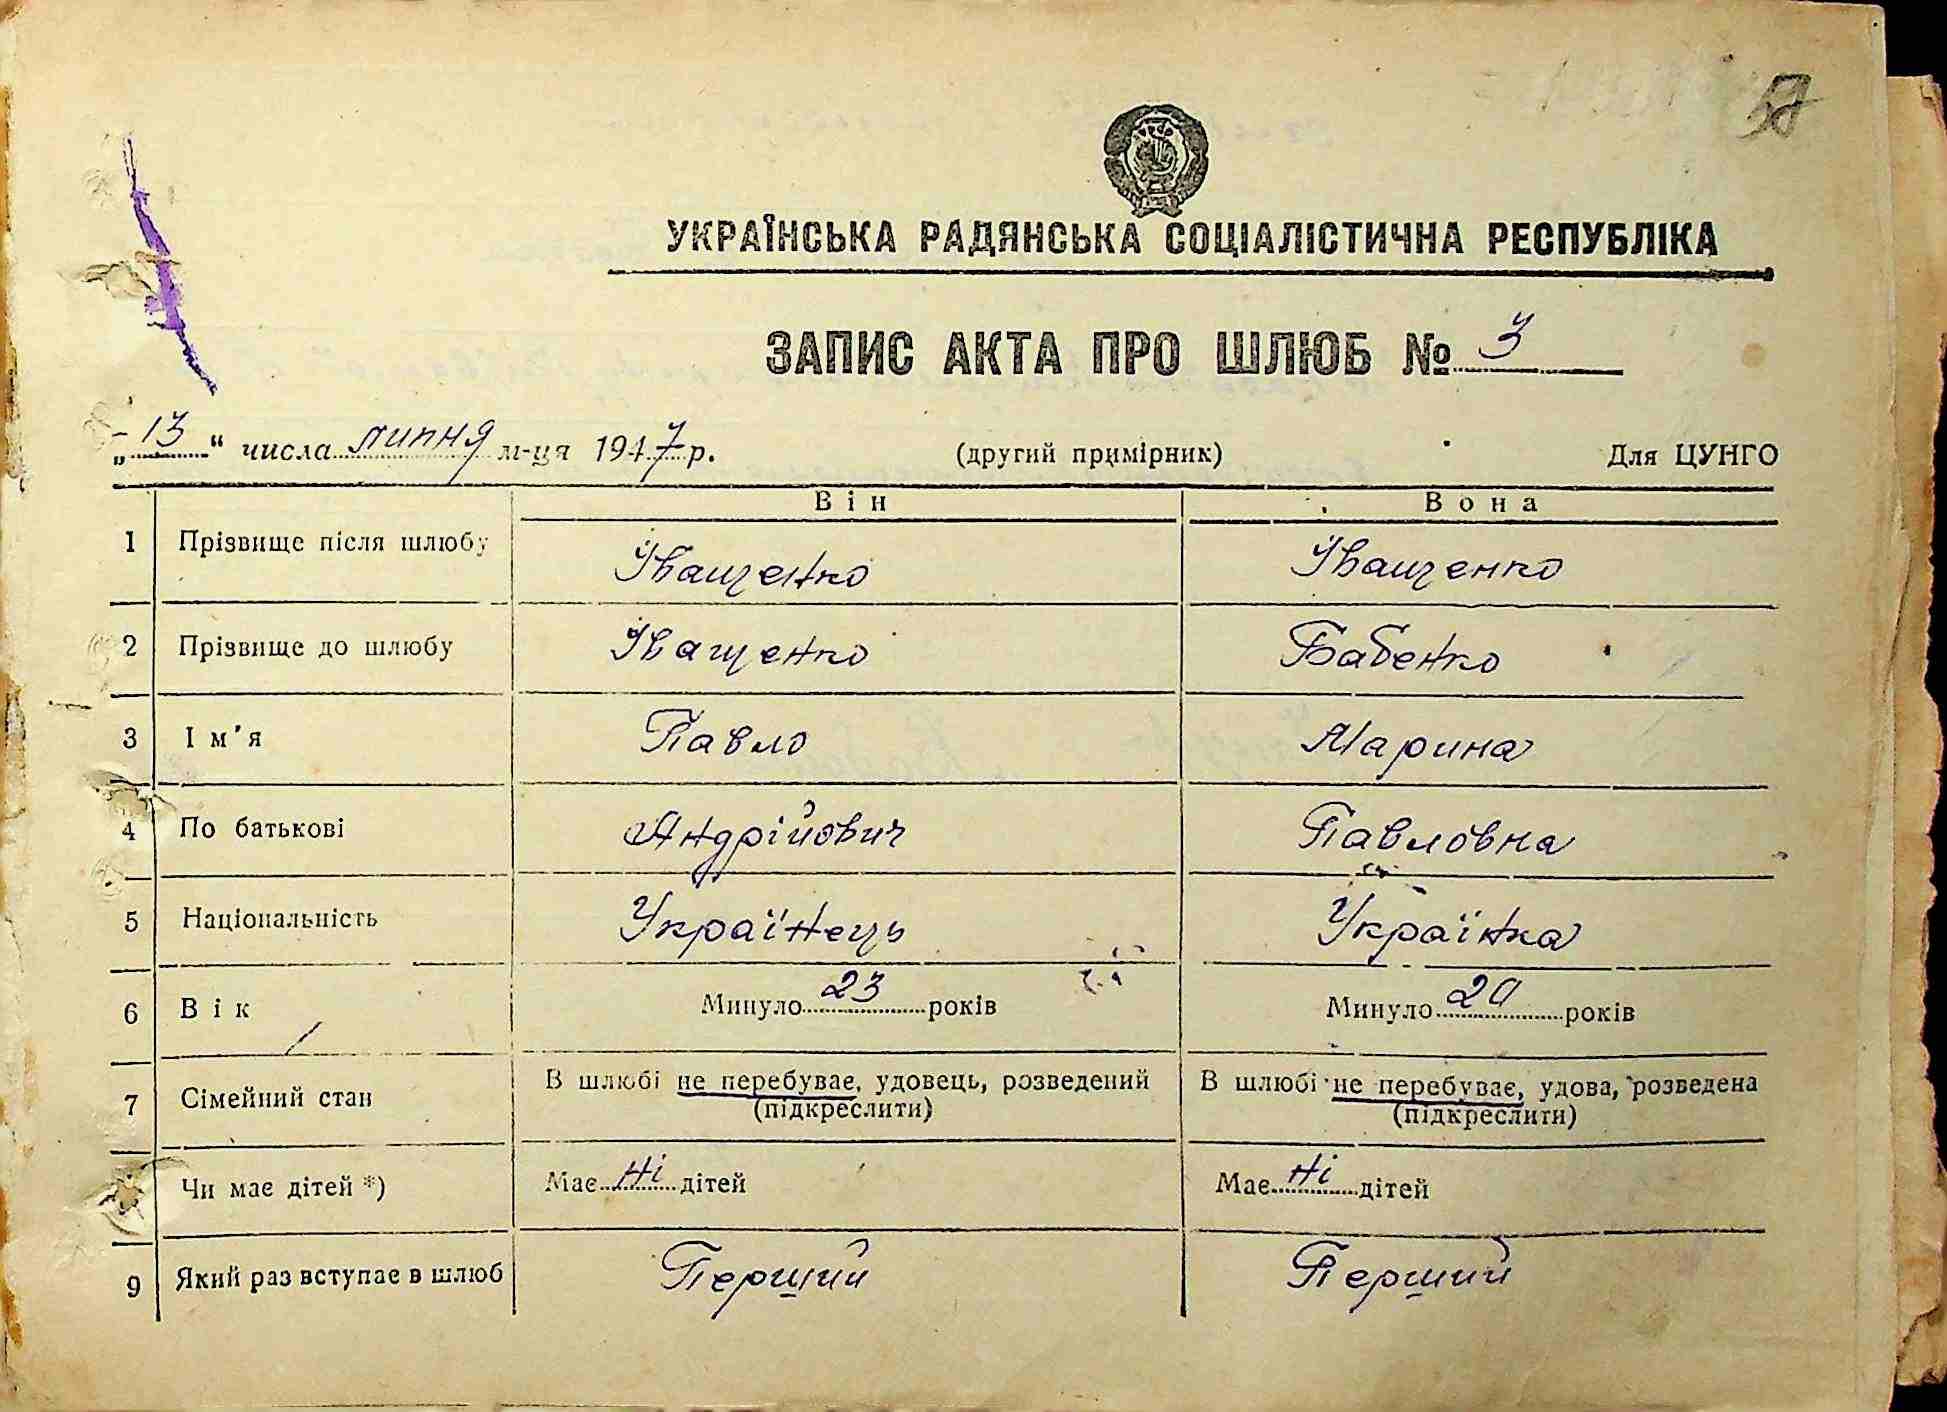 57
УКРАЇНСЬКА РАДЯНСЬКА СОЦІАЛІСТИЧНА РЕСПУБЛІКА
ЗАПИС АКТА ПРО ШЛЮБ № 3
„13“ числа липня м-ця 1947 р. (другий примірник) Для ЦУНГО
Він Вона
1 Прізвище після шлюбу Іващенко Іващенко
2 Прізвище до шлюбу Іващенко Бабенко
3 Ім'я Павло Марина
4 По батькові Андрійович Павловна
5 Національність Українець Українка
6 Вік Минуло 23 років Минуло 20 років
7 Сімейний стан В шлюбі не перебуває, удовець, розведений (підкреслити) В шлюбі не перебуває, удова, розведена (підкреслити)
Чи має дітей *) Має ні дітей Має ні дітей
9 Який раз вступає в шлюб Перший Перший